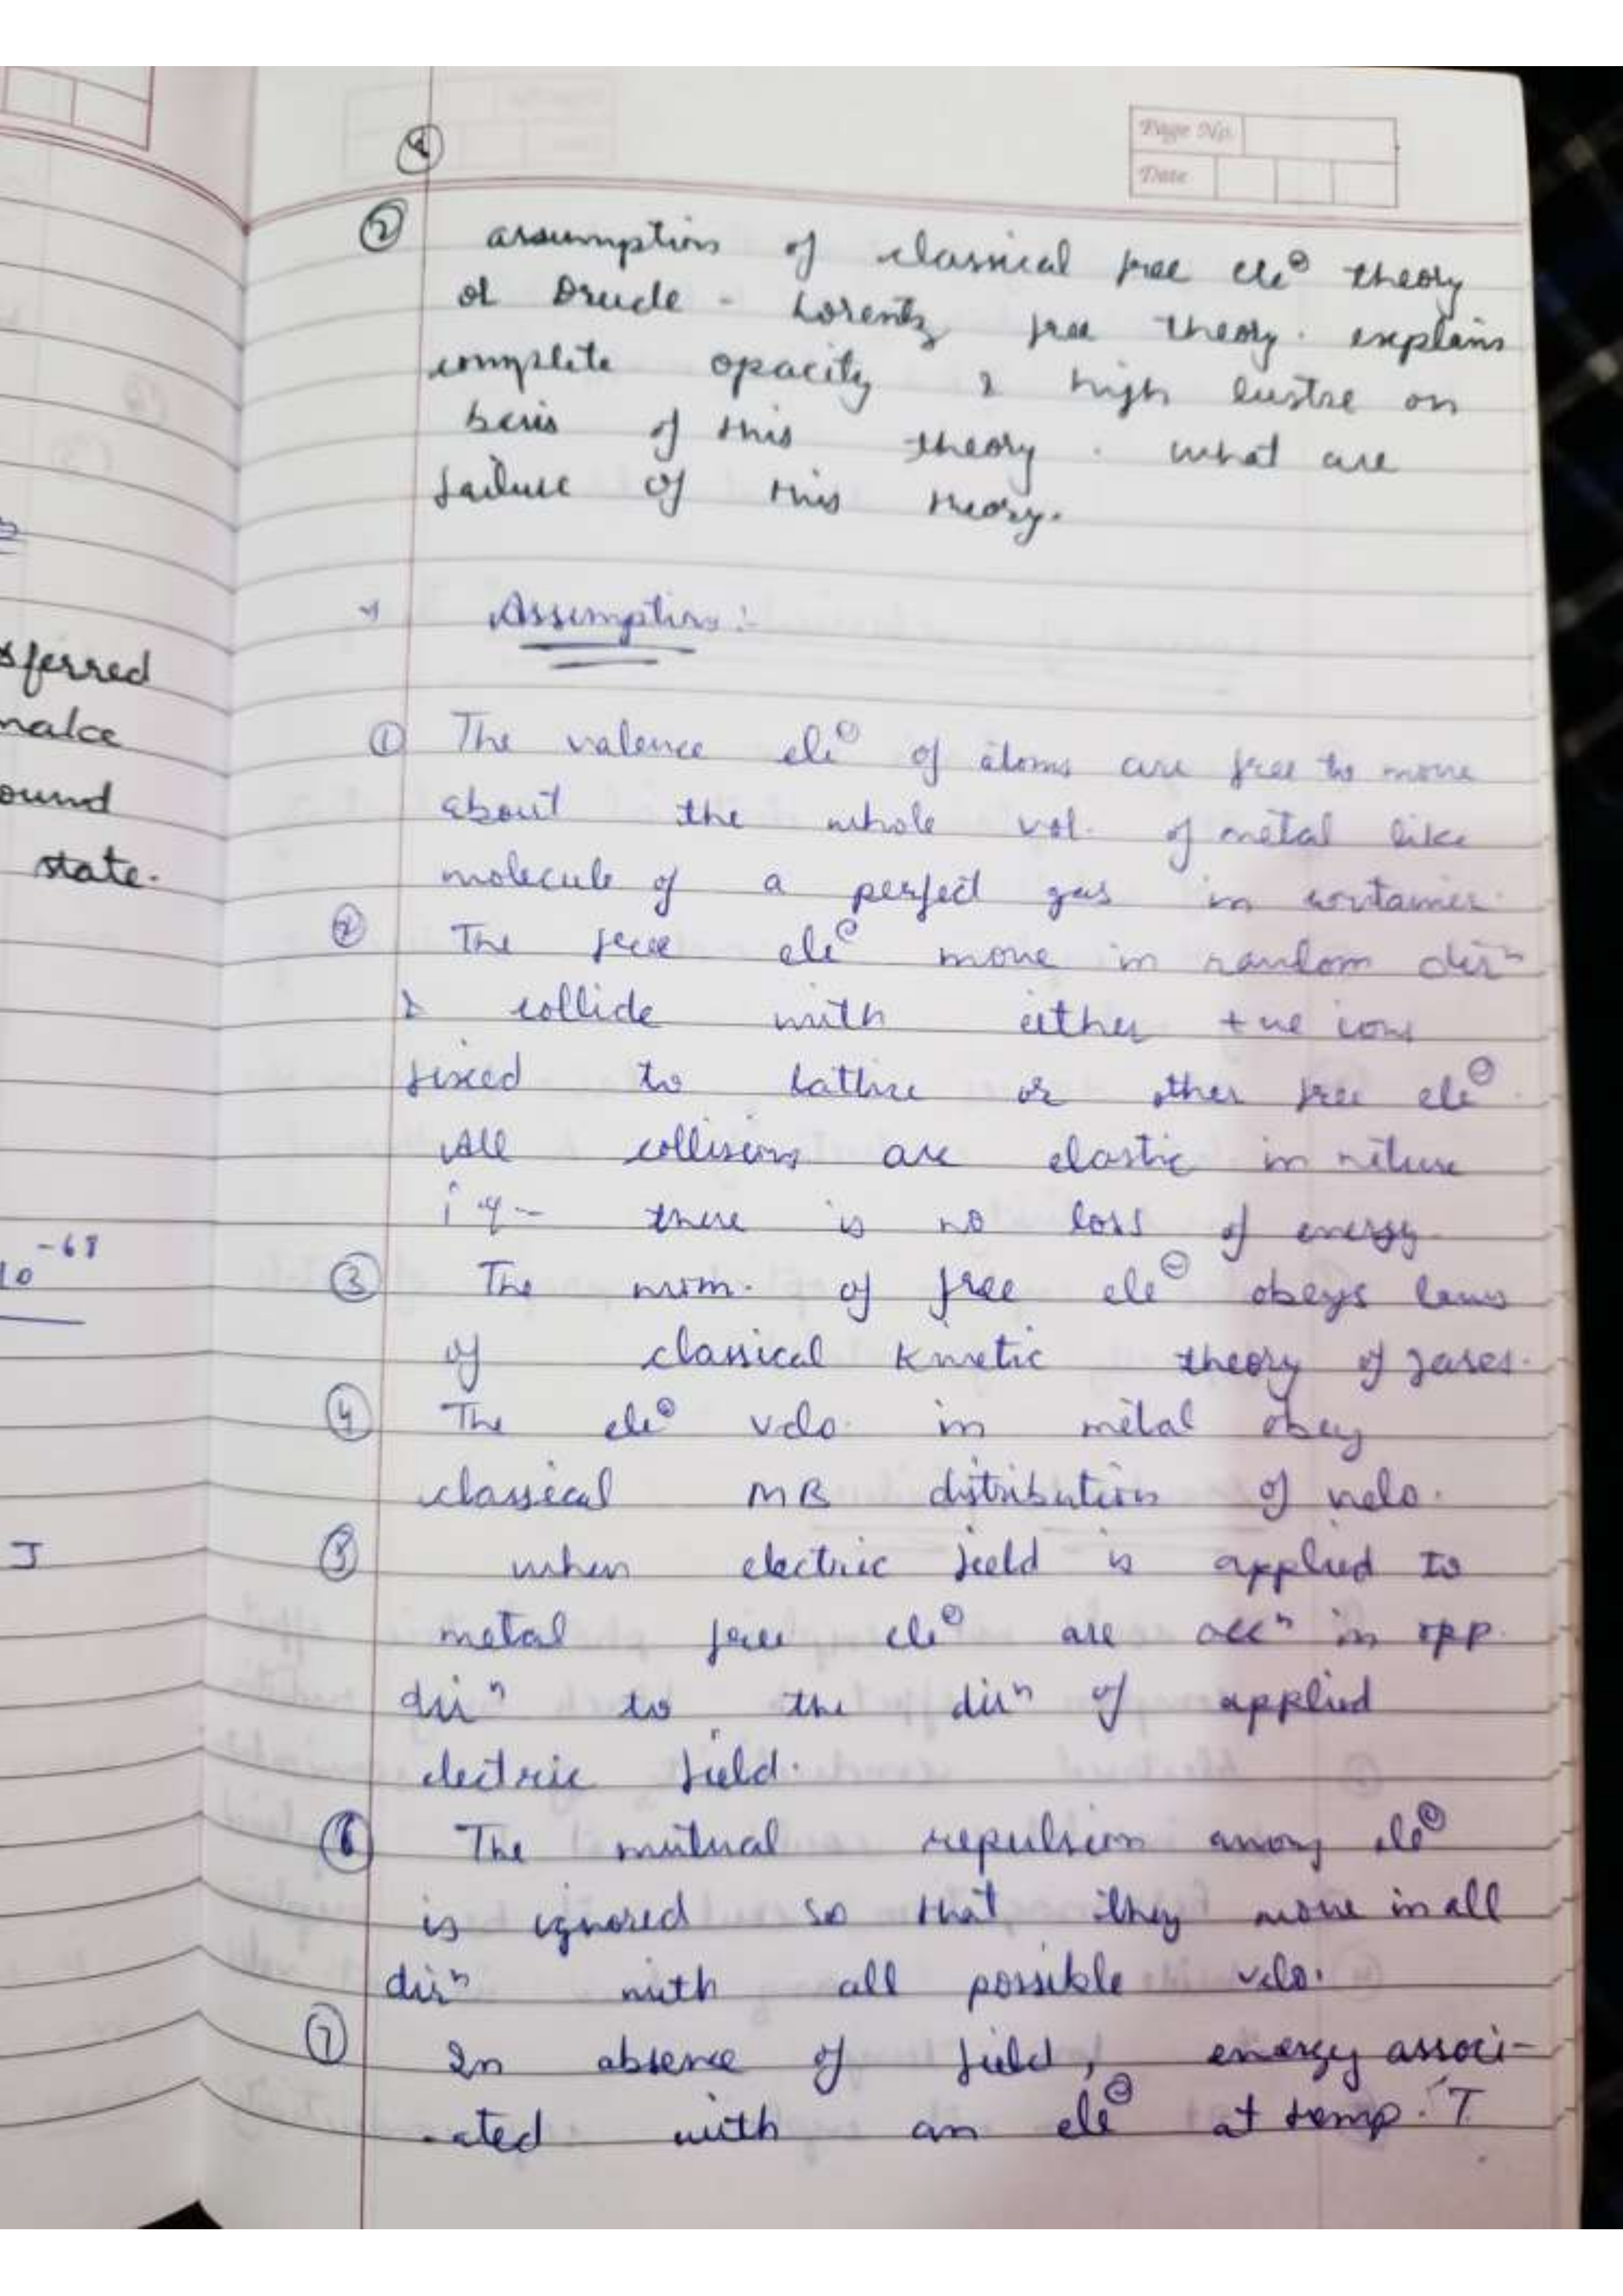 Page No.
Date
②
assumption of classical free ele⊖ theory
or Drude - Lorentz free theory. explains
complete opacity & high lustre on
basis of this theory. what are
failure of this theory.
Assumptions :-
① The valence ele⊖ of atoms are free to move
about the whole vol. of metal like
molecule of a perfect gas in container.
② The free ele⊖ move in random dirⁿ
& collide with either +ve ions
fixed to lattice or other free ele⊖.
All collisions are elastic in nature
there is no loss of energy.
③ The mom. of free ele⊖ obeys laws
of classical Kinetic theory of gases.
④ The ele⊖ velo. in metal obey
classical MB distribution of velo.
⑤ when electric field is applied to
metal free ele⊖ are accⁿ in opp.
dirⁿ to the dirⁿ of applied
electric field.
⑥ The mutual repulsion among ele⊖
is ignored so that they move in all
dirⁿ with all possible velo.
⑦ In absence of field, energy associ-
-ated with an ele⊖ at temp. 'T
sferred
make
ound
state.
10⁻⁶⁸
J